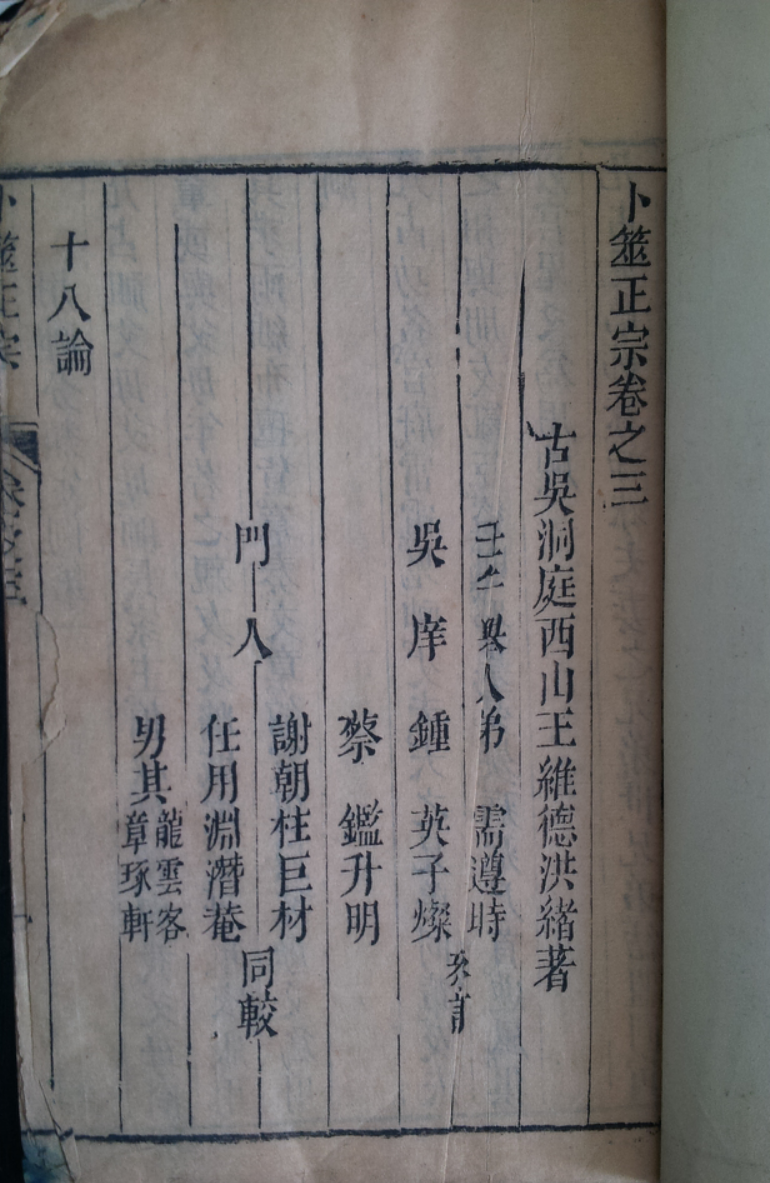 卜筮正宗卷之三
古吳洞庭西山王維德洪緒著
壬午舉人弟 需遵時
吳庠 鍾 英子燦
參訂
蔡 鑑升明
門人
謝朝柱巨材
任用淵潛菴
同較
男其龍雲客
章琢軒
十八論
卜筮正宗